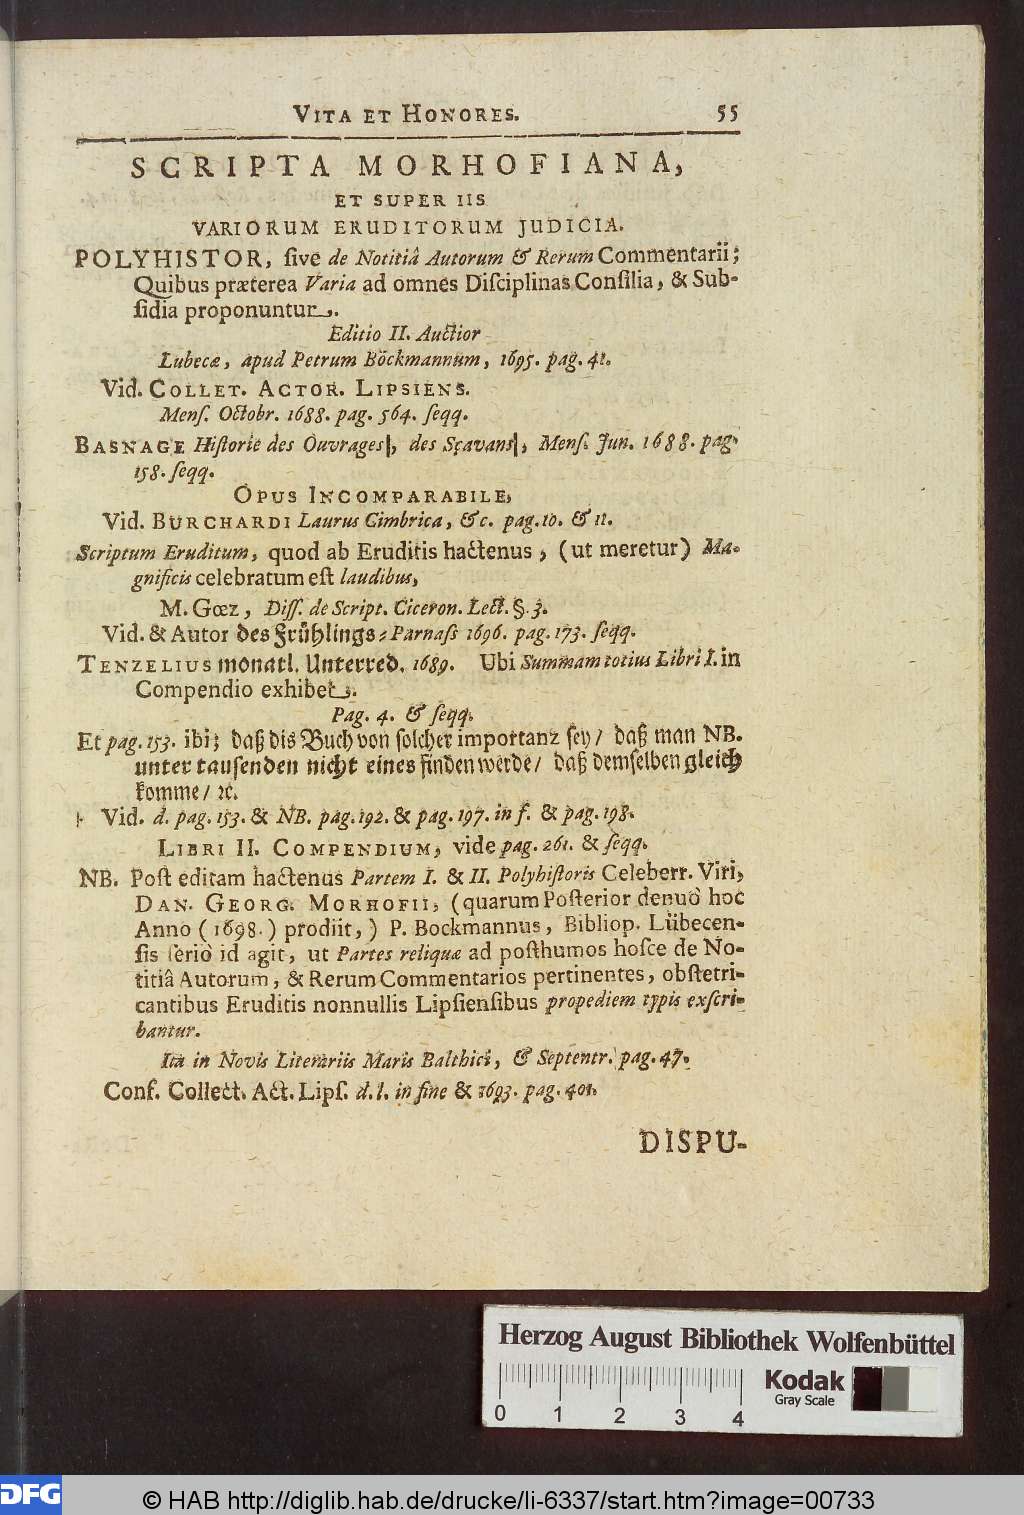 VITA ET HONORES. 55
SCRIPTA MORHOFIANA,
ET SUPER IIS
VARIORUM ERUDITORUM JUDICIA.
POLYHISTOR, ſive de Notitiâ Autorum & Rerum Commentarii;
Quibus præterea Varia ad omnes Diſciplinas Conſilia, & Sub-
ſidia proponuntur.
Editio II. Auctior
Lubecæ, apud Petrum Böckmannum, 1695. pag. 41.
Vid. COLLET. ACTOR. LIPSIENS.
Menſ. Octobr. 1688. pag. 564. ſeqq.
BASNAGE Hiſtorie des Ouvrages|, des Sçavans|, Menſ. Jun. 1688. pag.
158. ſeqq.
OPUS INCOMPARABILE,
Vid. BURCHARDI Laurus Cimbrica, &c. pag. 10. & 11.
Scriptum Eruditum, quod ab Eruditis hactenus, (ut meretur) Ma-
gnificis celebratum eſt laudibus,
M. Gœz, Diſſ. de Script. Ciceron. Lect. §. 3.
Vid. & Autor des Frühlings-Parnaſs 1696. pag. 173. ſeqq.
TENZELIUS monatl. Unterred. 1689. Ubi Summam totius Libri I. in
Compendio exhibet.
Pag. 4. & ſeqq.
Et pag. 153. ibi; daß dis Buch von ſolcher importanz ſey/ daß man NB.
unter tauſenden nicht eines finden werde/ daß demſelben gleich
komme/ ꝛc.
Vid. d. pag. 153. & NB. pag. 192. & pag. 197. in f. & pag. 198.
LIBRI II. COMPENDIUM, vide pag. 261. & ſeqq.
NB. Poſt editam hactenus Partem I. & II. Polyhiſtoris Celeberr. Viri,
DAN. GEORG. MORHOFII, (quarum Poſterior denuò hoc
Anno (1698.) prodiit,) P. Bockmannus, Bibliop. Lübecen-
ſis ſeriò id agit, ut Partes reliquæ ad poſthumos hoſce de No-
titiâ Autorum, & Rerum Commentarios pertinentes, obſtetri-
cantibus Eruditis nonnullis Lipſienſibus propediem typis exſcri-
bantur.
Ita in Novis Literariis Maris Balthici, & Septentr. pag. 47.
Conf. Collect. Act. Lipſ. d. l. in fine & 1693. pag. 401.
DISPU-
Herzog August Bibliothek Wolfenbüttel
0 1 2 3 4
Kodak
Gray Scale
DFG
© HAB http://diglib.hab.de/drucke/li-6337/start.htm?image=00733